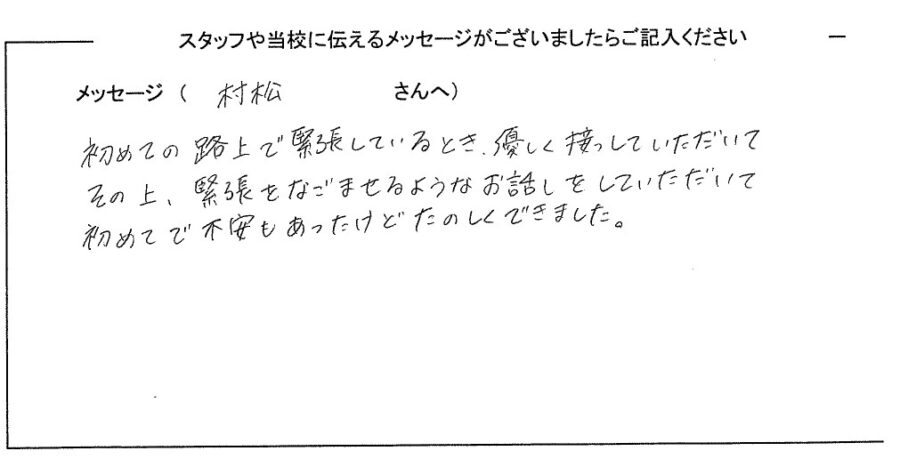 スタッフや当校に伝えるメッセージがございましたらご記入ください
メッセージ ( 村松 さんへ)
初めての路上で緊張しているとき、優しく接っしていただいて
その上、緊張をなごませるようなお話しをしていただいて
初めてで不安もあったけどたのしくできました。